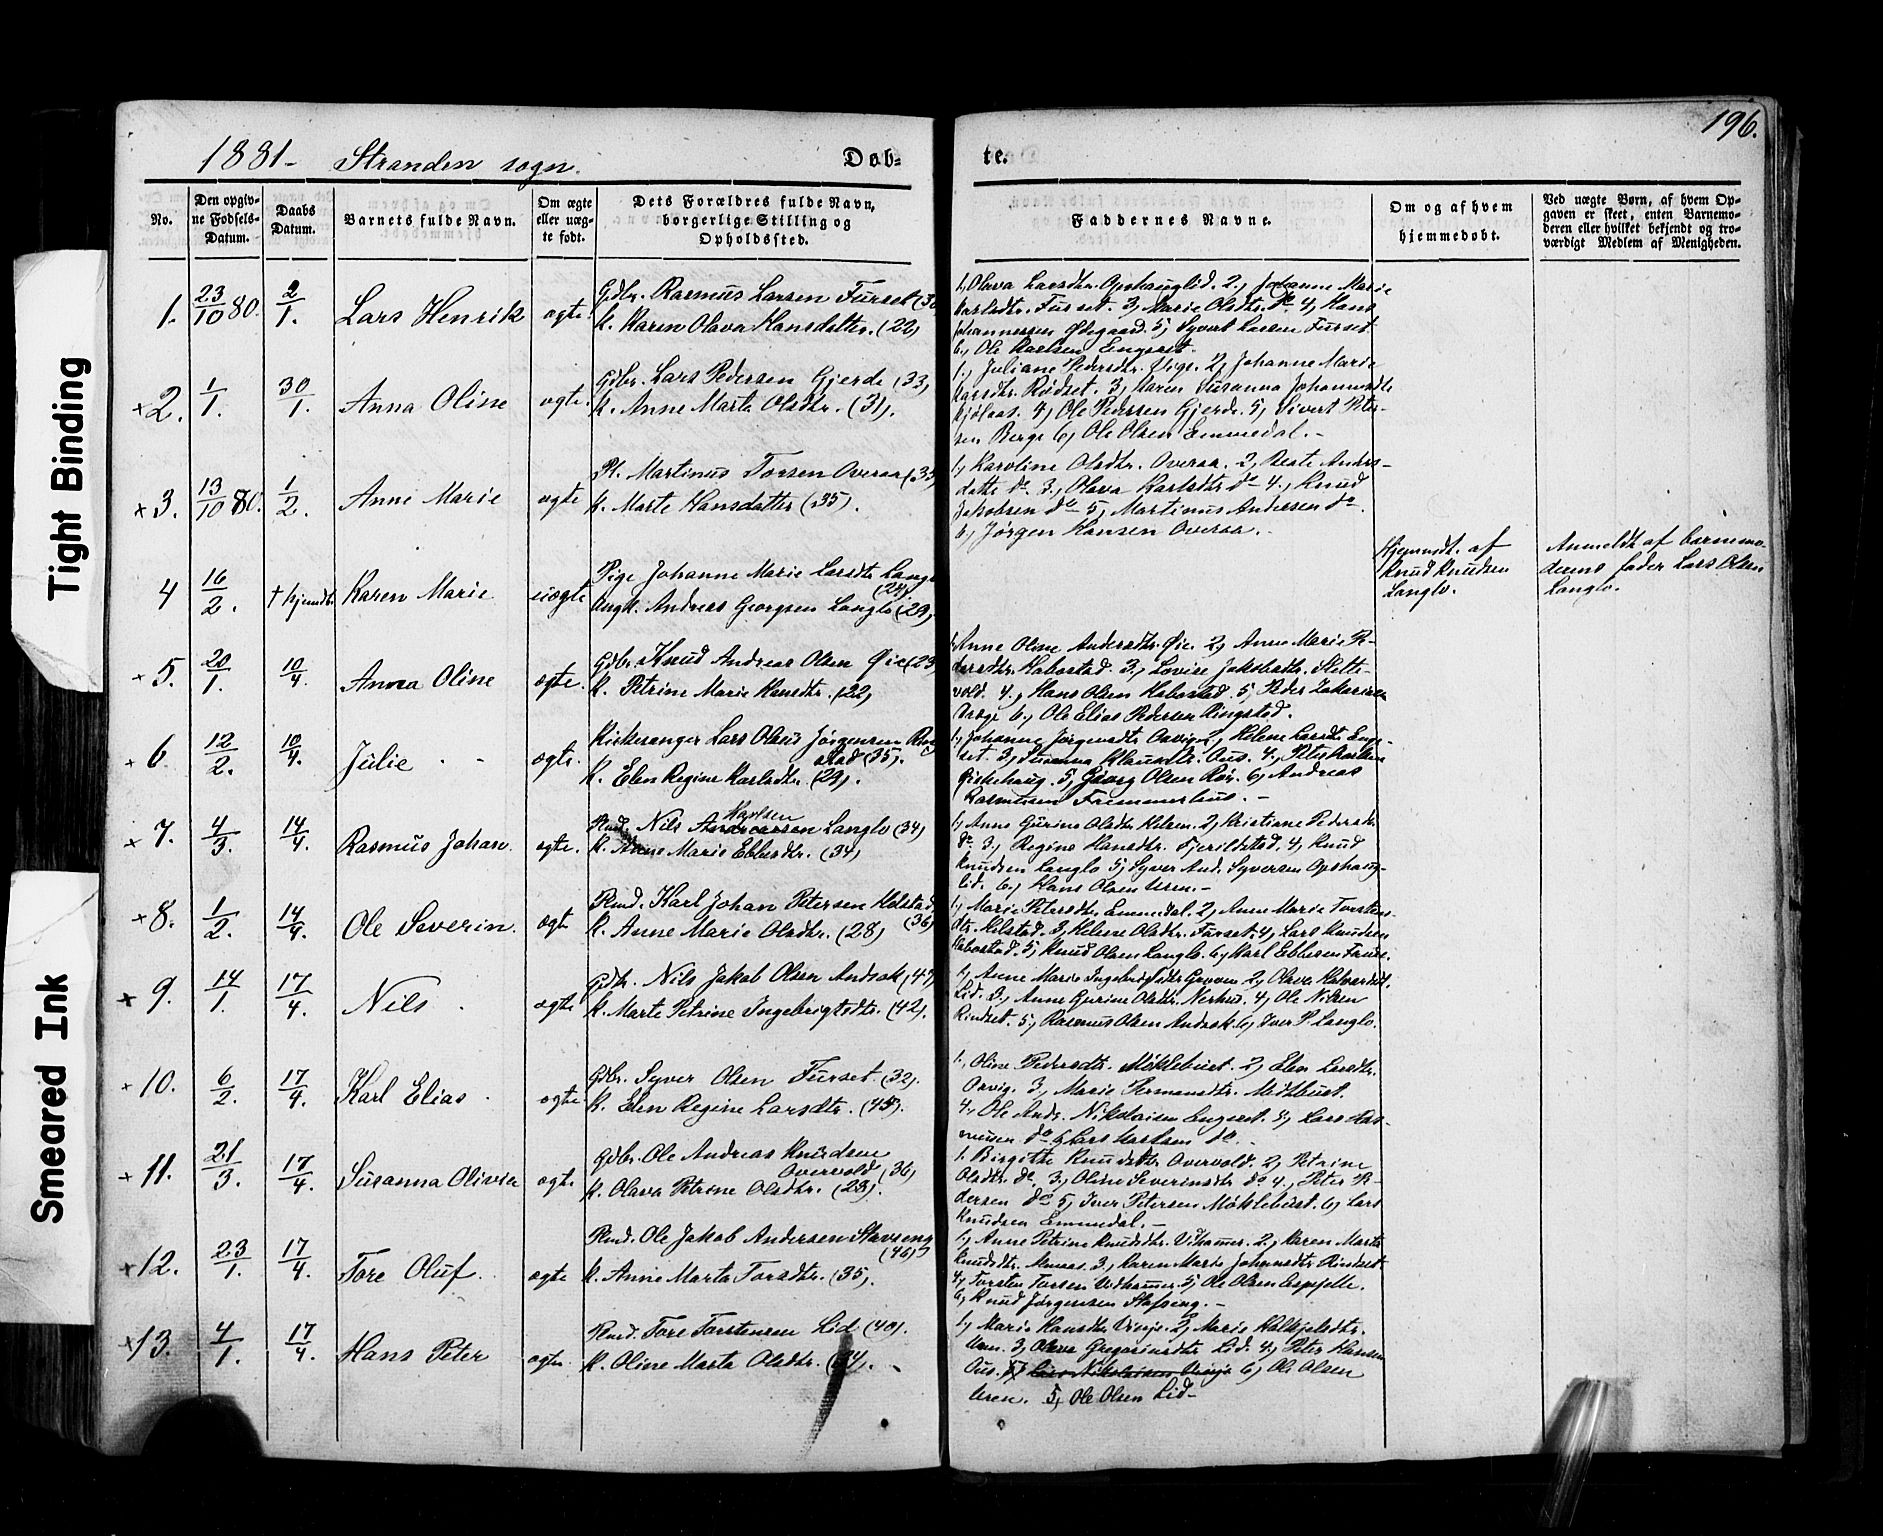 196.
1881- Stranden sogn.
Døb=
te.
No.
Den opgiv-
ne Fødsels-
Datum.
Daabs
Datum.
Barnets fulde Navn.
Om ægte
eller uæg-
te født.
Dets Forældres fulde Navn,
borgerlige Stilling og
Opholdssted.
Faddernes Navne.
Om og af hvem
hjemmedøbt.
Ved uægte Børn, af hvem Op-
gaven er skeet, enten Barnemo-
deren eller hvilket bekjendt og tro-
værdigt Medlem af Menigheden.
Tight Binding
Smeared Ink
1. 23/10 80. 2/1. Lars Henrik ægte.
Gdbr. Rasmus Larsen Furset
K. Karen Olava Hansdatter. (22)
1, Olava Larsdtr. Opshauglid. 2., Johanne Marie
Karlsdtr. Furset. 3, Marie Olsdtr. do 4, Hans
Johannessen Ødegaard. 5, Syvert Larsen Furset
6., Ole Karlsen Engeset.
x2. 1/1. 30/1. Anna Oline ægte.
Gdbr. Lars Pedersen Gjerde (33)
K. Anne Marta Olsdtr. (31).
1., Juliane Pedersdtr. 2, Johanne Marie
Larsdtr. Rødset. 3, Karen Susanna Johannesdtr
4, Ole Pedersen Gjerde. 5, Sivert Peter-
sen Berge 6, Ole Olsen Emmedal. -
x3. 13/10 80. 1/2. Anne Marie ægte
Pl. Martinus Torsen Overaa (35)
K. Marte Hansdatter (35).
1, Karoline Olsdtr. Overaa. 2, Beate Anders-
datter do. 3., Olava Karlsdtr do 4., Knud
Jakobsen do 5, Martinus Andersen do.
6, Jørgen Hansen Overaa. -
4 16/2. † hjemdt. Karen Marie uægte
Pige Johanne Marie Larsdtr Langlo
(24)
Ungk. Andreas Georgsen Langlo (29).
Hjemmdt. af
Knud Knudsen
Langlo.
Anmeldt af barnemo-
derens fader Lars Olsen
Langlo.
x5. 20/1. 10/4. Anna Oline ægte.
Gdbr. Knud Andreas Olsen Øie (23)
K. Petrine Marie Hansdtr. (22)
1, Anne Oline Andersdtr. Øie. 2, Anne Marie Pe-
dersdtr. Habostad. 3., Lovise Jakobsdtr. Slett-
vold. 4., Hans Olsen Habostad. 5, Peder Zakariasen
6., Ole Elias Pedersen Ringstad.
x6 12/2. 10/4. Julie - - ægte.
Kirkesanger Lars Olaus Jørgensen Ring-
stad (35).
K. Elen Regine Karlsdtr. (29).
1., Johanne Jørgensdtr. Orvig. 2, Helene Larsdtr. Enge-
set. 3, Susanna Klausdtr. Aus. 4., Peter Karlsen
5, Georg Olsen Røv. 6, Andreas
Rasmussen Fremmerhus. -
x7. 4/3. 14/4. Rasmus Johan. ægte.
Rmd. Nils Andreassen Langlo (34)
Karlsen
K. Anne Marie Ebbesdtr. (34)
1, Anne Gurine Olsdtr. 2, Kristiane Pedersdtr.
do 3, Regine Hansdtr. Fjerildstad. 4, Knud
Knudsen Langlo 5, Syver And. Syversen Opshaug-
lid. 6., Hans Olsen Uren. -
x8. 1/2. 14/4. Ole Severin. ægte
Rmd. Karl Johan Petersen Helstad
(36)
K. Anne Marie Olsdtr. (28)
1, Marie Petersdtr. Emmedal. 2, Anne Marie Torstens-
dtr. Helstad. 3, Helene Olsdtr. Furset. 4, Lars Knudsen
Habostad. 5, Knud Olsen Langlo. 6, Karl Ebbesen
x9. 14/1. 17/4. Nils. ægte
Gdbr. Nils Jakob Olsen Andaak (47)
K. Marte Petrine Ingebrigtsdtr. (42).
1, Anne Marie Ingebrigtsdtr. 2, Olava Halvardsdtr.
Lid. 3, Anne Gurine Olsdtr. Nerhus. 4, Ole Nilsen
Rindset. 5, Rasmus Olsen Andaak. 6, Iver P. Langlo.
x10. 6/2. 17/4. Karl Elias. ægte
Gdbr. Syver Olsen Furset (32).
K. Elen Regine Larsdtr. (45).
1., Oline Pedersdtr. Møklebust. 2, Elen Larsdtr.
Orvig. 3, Marie Hermansdtr. Melkbust.
4., Ole Ands. Nikolaisen Engeset. 5, Lars Ras-
mussen do 6 Lars Karlsen do. -
x11. 21/3. 17/4. Susanna Olivia ægte.
Gdbr. Ole Andreas Knudsen
Overvold (36)
K. Olava Petrine Olsdtr. (23).
1. Birgitte Knudsdtr. Overvold. 2, Petrine
Olsdtr. do 3, Oline Severinsdtr do 4., Peter Pe-
dersen do 5, Iver Petersen Møklebust. 6, Lars
Knudsen Emmedal. -
x12. 23/1. 17/4. Tore Oluf. ægte
Rmd. Ole Jakob Andersen Stavseng
(46)
K. Anne Marta Torsdtr. (35).
1, Anne Petrine Knudsdtr. Vidhammer. 2, Karen Marta
Knudsdtr. 3, Karen Marte Johansdtr Rindset
4, Torsten Torsen Vidhammer 5, Ole Olsen Espehjelle.
6, Knud Jørgensen Stafseng. -
x13. 4/1. 17/4. Hans Peter ægte.
Rmd. Tore Torstensen Lid (40).
K. Oline Marta Olsdtr.
1, Marie Hansdtr Vinje. 2, Marie
Uren. 3, Olava Gregoriusdtr Lid. 4, Peter Hansen
Aus. 5, Lars Nikolaisen Vinje 6, Ole Olsen
Uren. 5, Ole Olsen Lid-